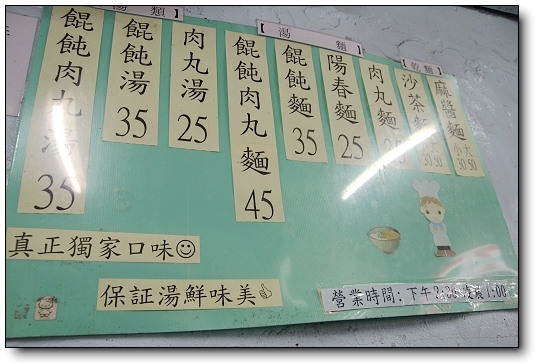 湯類】
【湯麵】
【乾麵】
餛飩肉丸湯 35
餛飩湯 35
肉丸湯 25
餛飩肉丸麵 45
餛飩麵 35
陽春麵 25
肉丸麵
沙茶麵 小大 50
麻醬麵 小大 30 50
真正獨家口味
保証湯鮮味美
營業時間:下午2:30 1:00